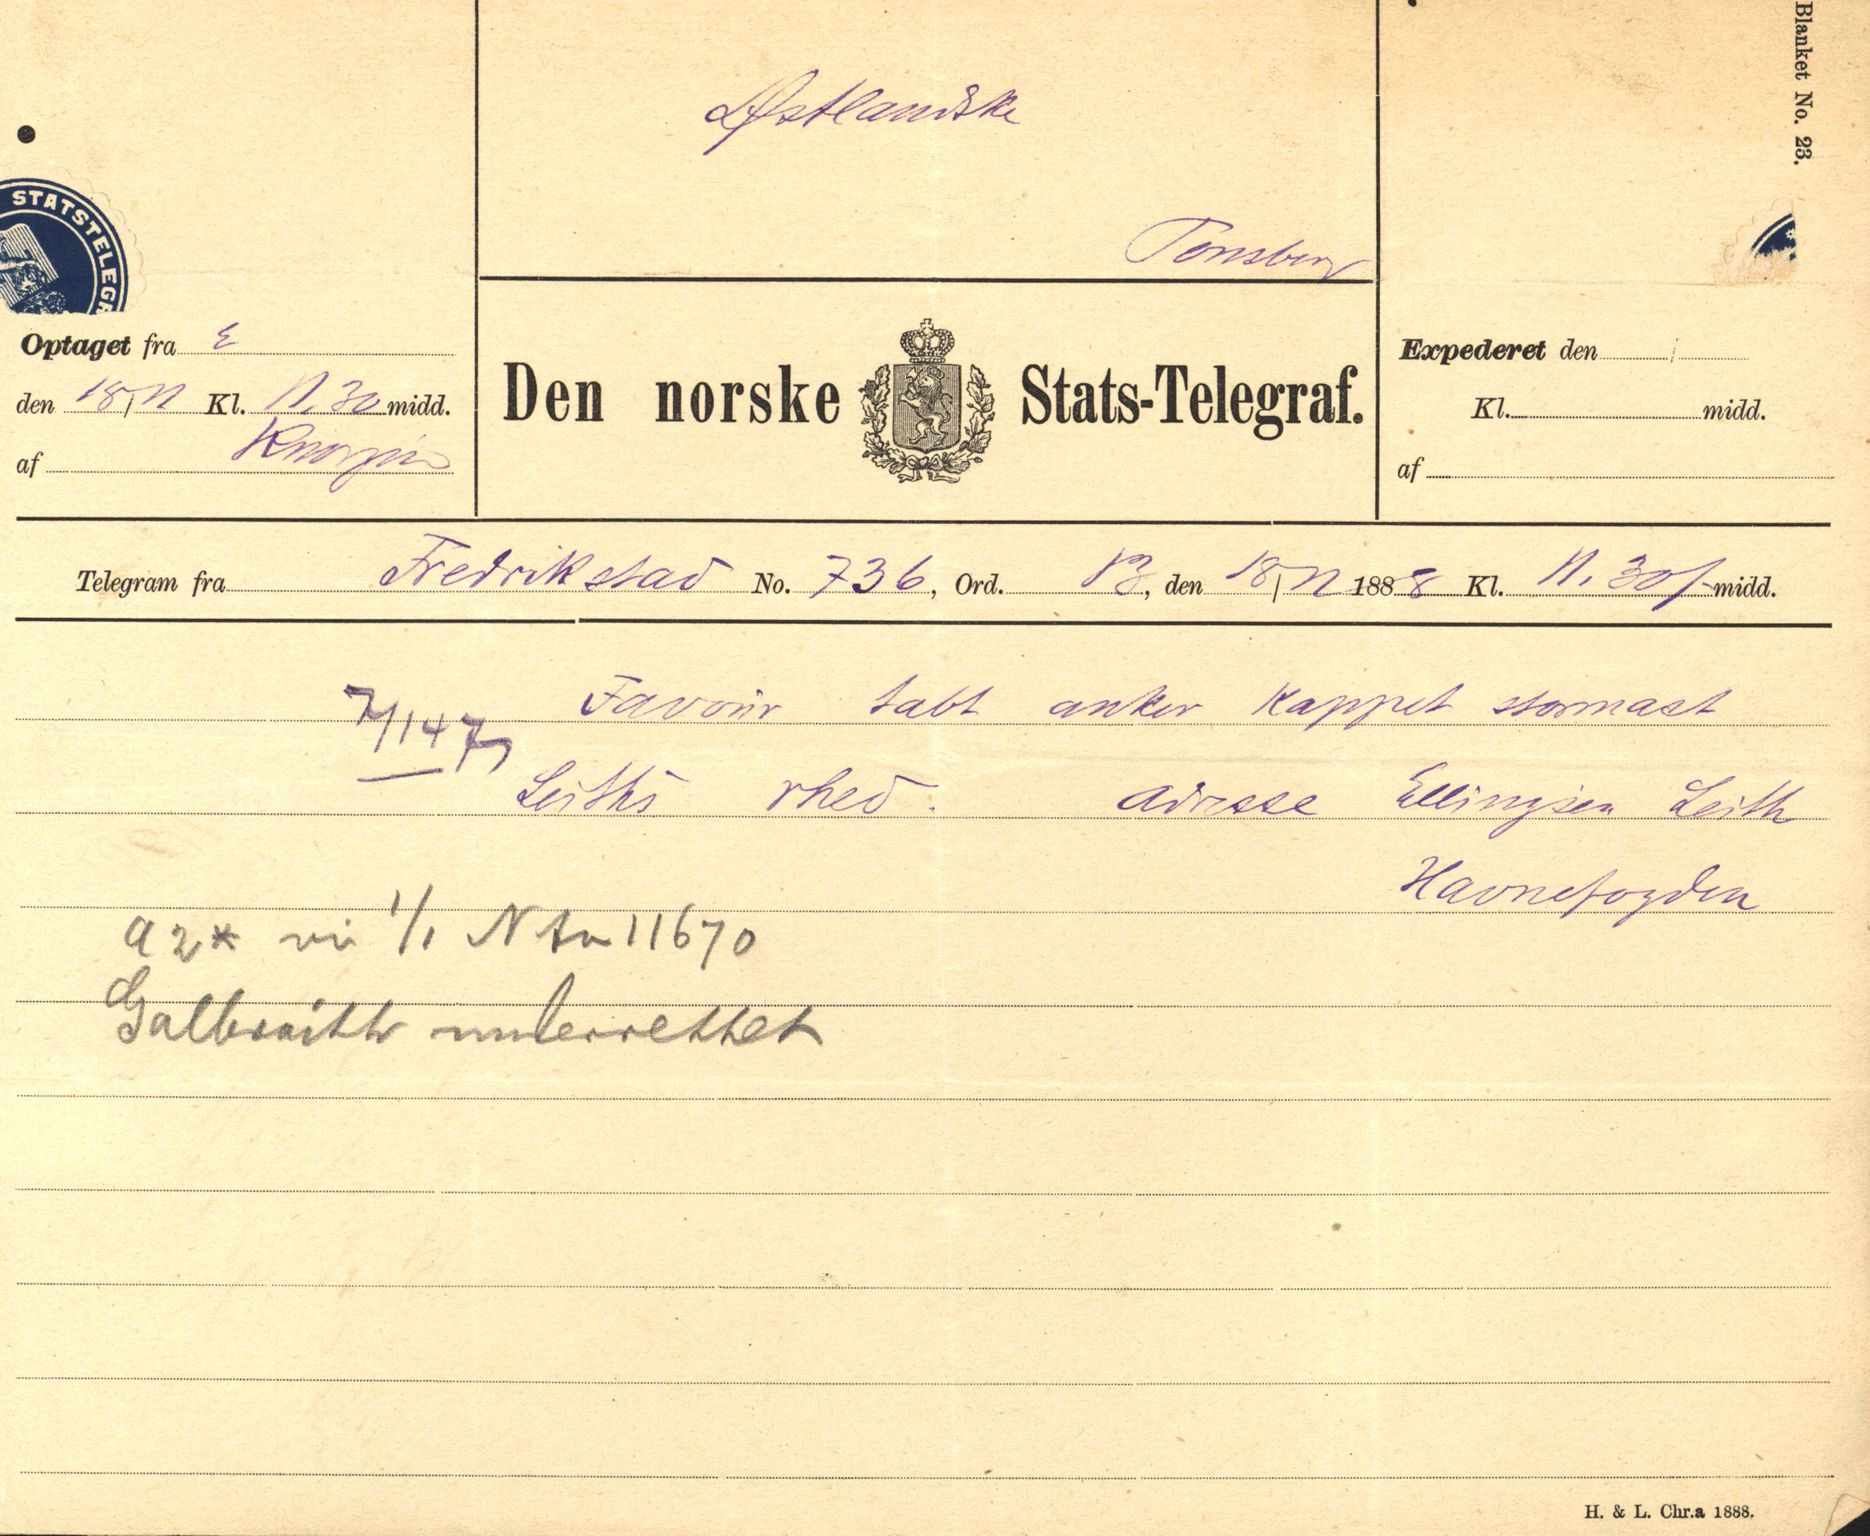 Blanket No. 23.
Østlandske
Tønsberg
STATSTELEGR
Optaget fra E
den 18/11 Kl. 11.30 midd.
af
Den norske Stats-Telegraf.
Expederet den /
Kl. midd.
af
Telegram fra Fredrikstad No. 736, Ord. 13, den 18/11 1888 Kl. 11.30 f midd.
Favorit tabt anker kappet stormast
Leiths rhed. adresse Ellingsen Leith
Havnefogden
7/147
a 2* 1/1 N 11670
Galbraith underrettet
H. & L. Chr.a 1888.